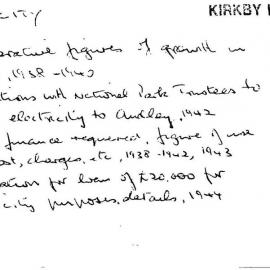 KIRKBY
figures of growth in
, 1938 - 1940
tions with National Park Trustees to
electricity to Audley, 1942
finance required, figure of use
ost, charges, etc, 1938-1942, 1943
ation for loan of £20,000 for
city purposes, details, 1944